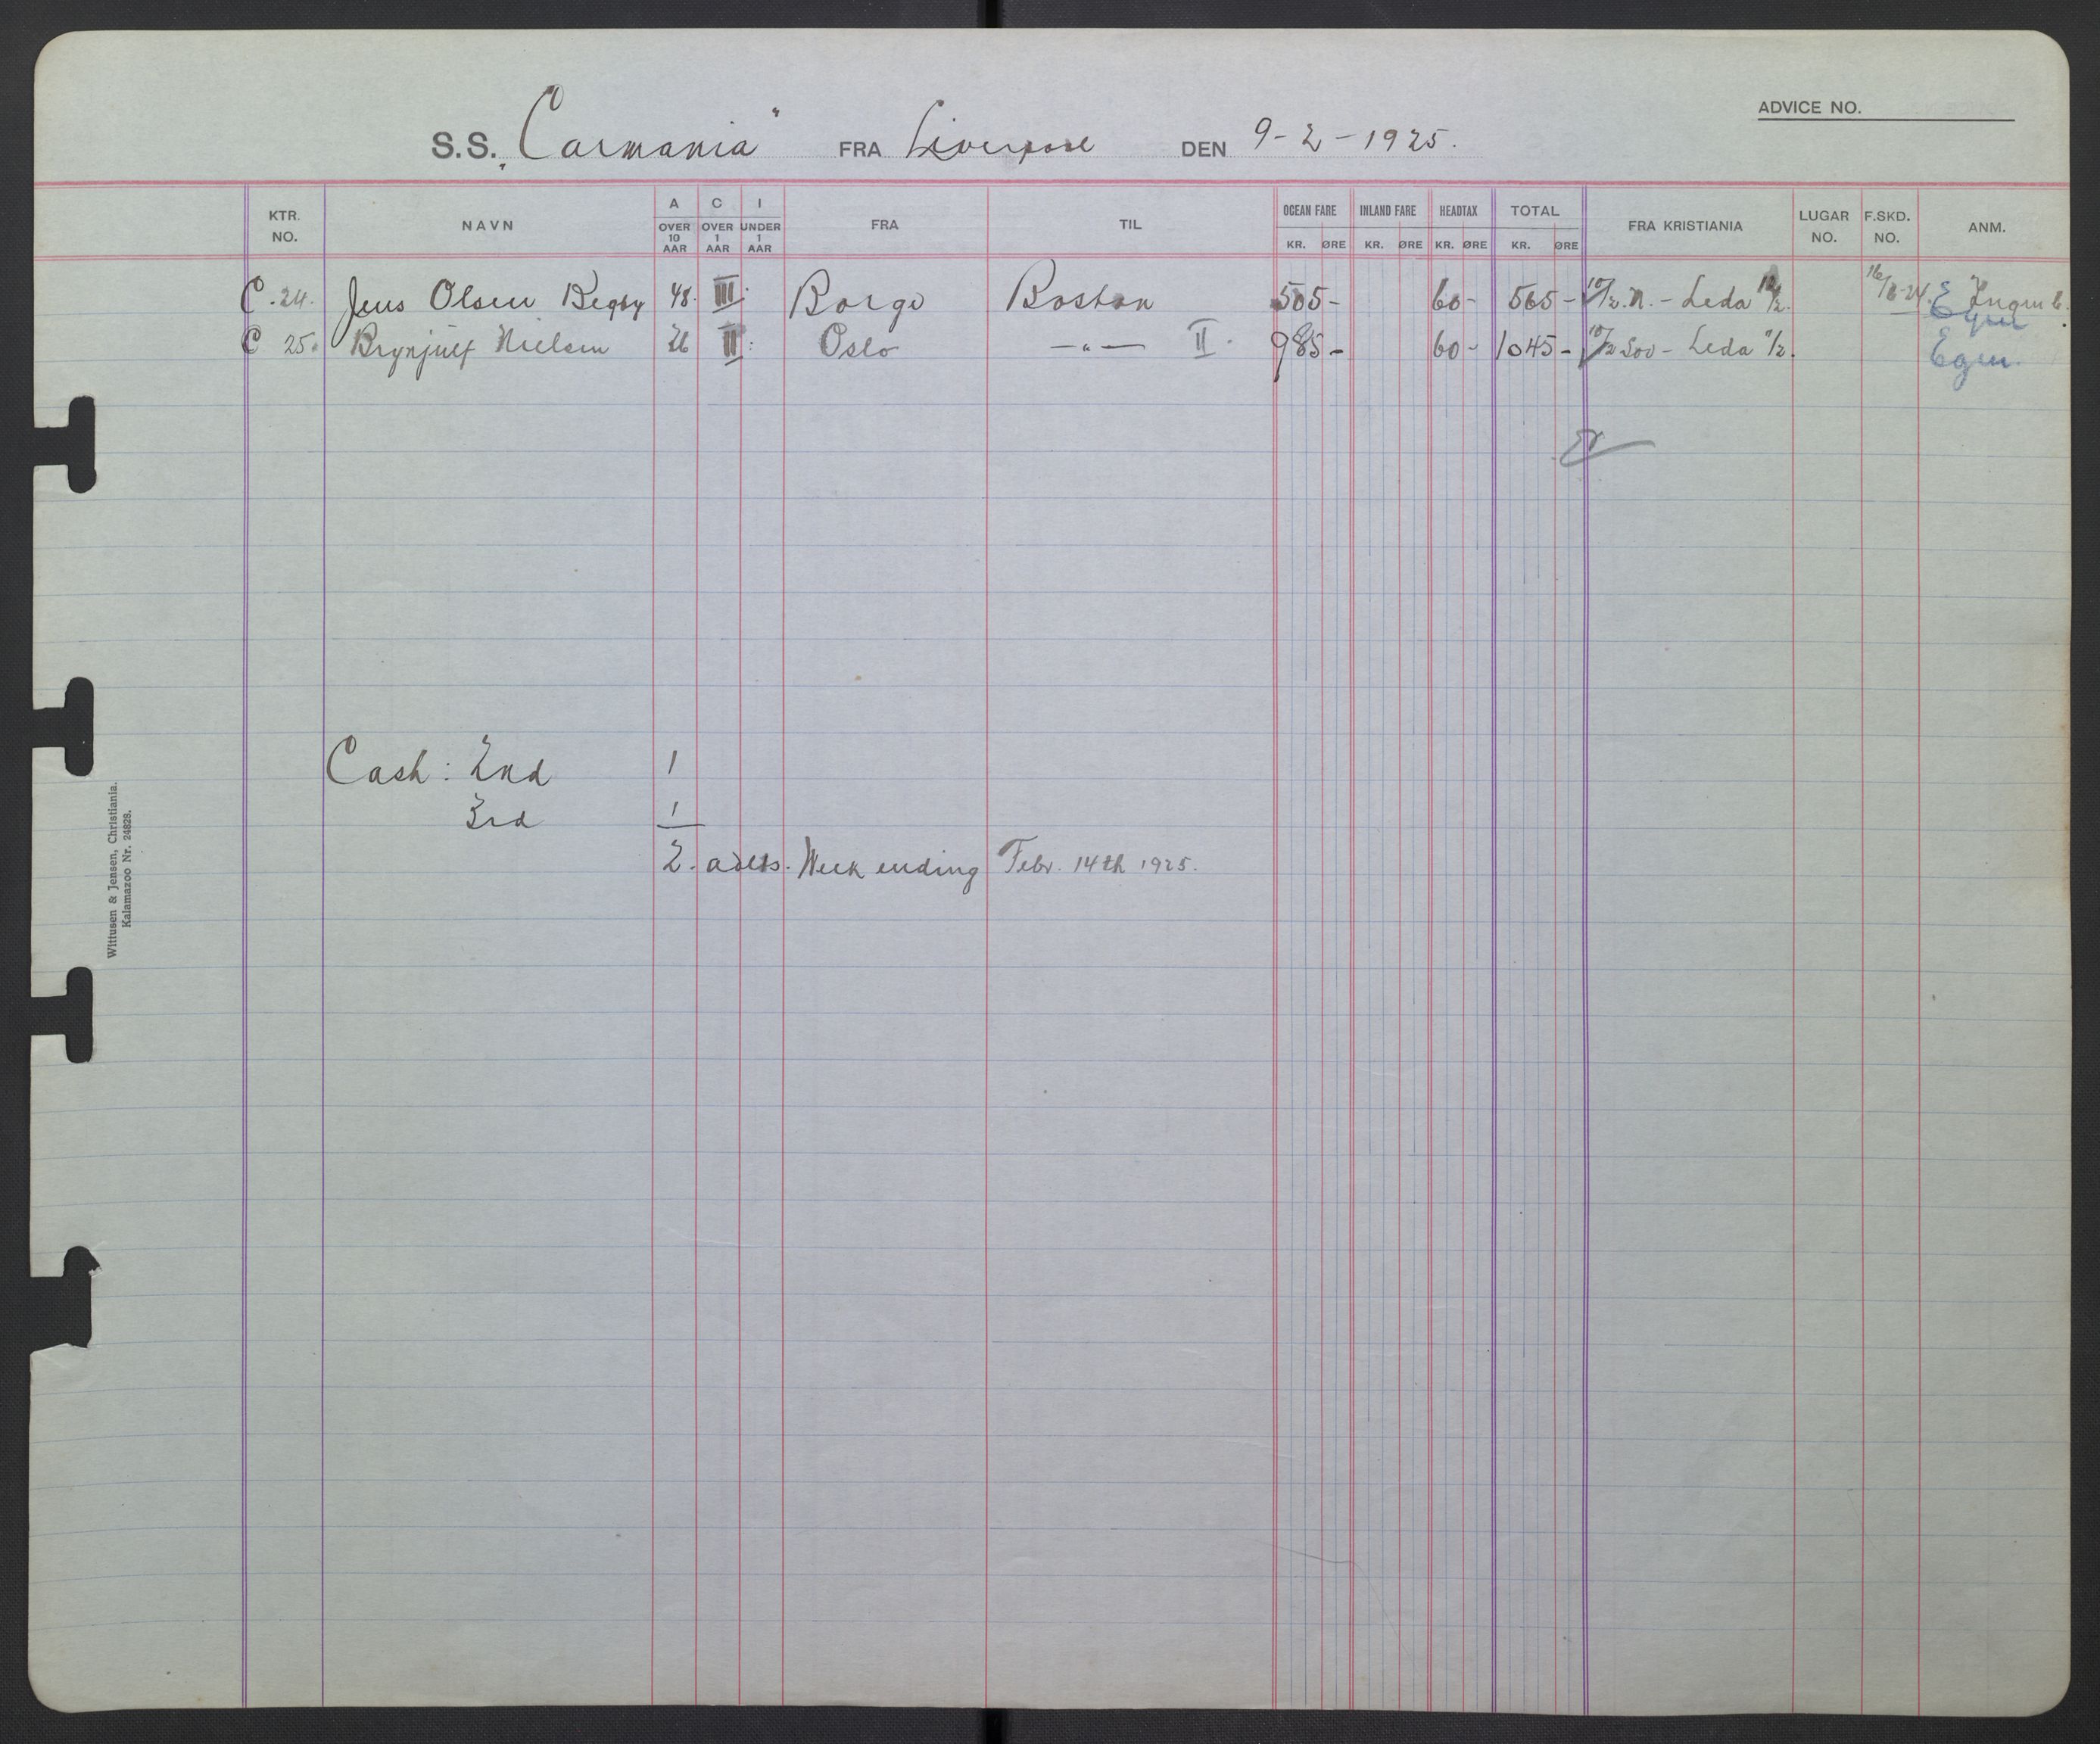 ADVICE NO.
S.S. „Carmania" FRA Liverpool DEN 9-2-1925.
KTR. NO. NAVN A OVER 10 AAR C OVER 1 AAR I UNDER 1 AAR FRA TIL OCEAN FARE KR. ØRE INLAND FARE KR. ØRE HEADTAX KR. ØRE TOTAL KR. ØRE FRA KRISTIANIA LUGAR NO. F.SKD. NO. ANM.
C. 24. Jens Olsen Begby 48. III. Borge Boston 505- 60- 565- 10/2. N. - Leda 12/2. E Egen
C 25. Brynjulf Nielsen 26 II: Oslo —"— II. 985- 60- 1045- 10/2 Sov - Leda "/2. Egen.
Cash: 2nd 1
3rd 1
2. adlts. Week ending Febr. 14th 1925.
Wittusen & Jensen, Christiania.
Kalamazoo Nr. 24828.